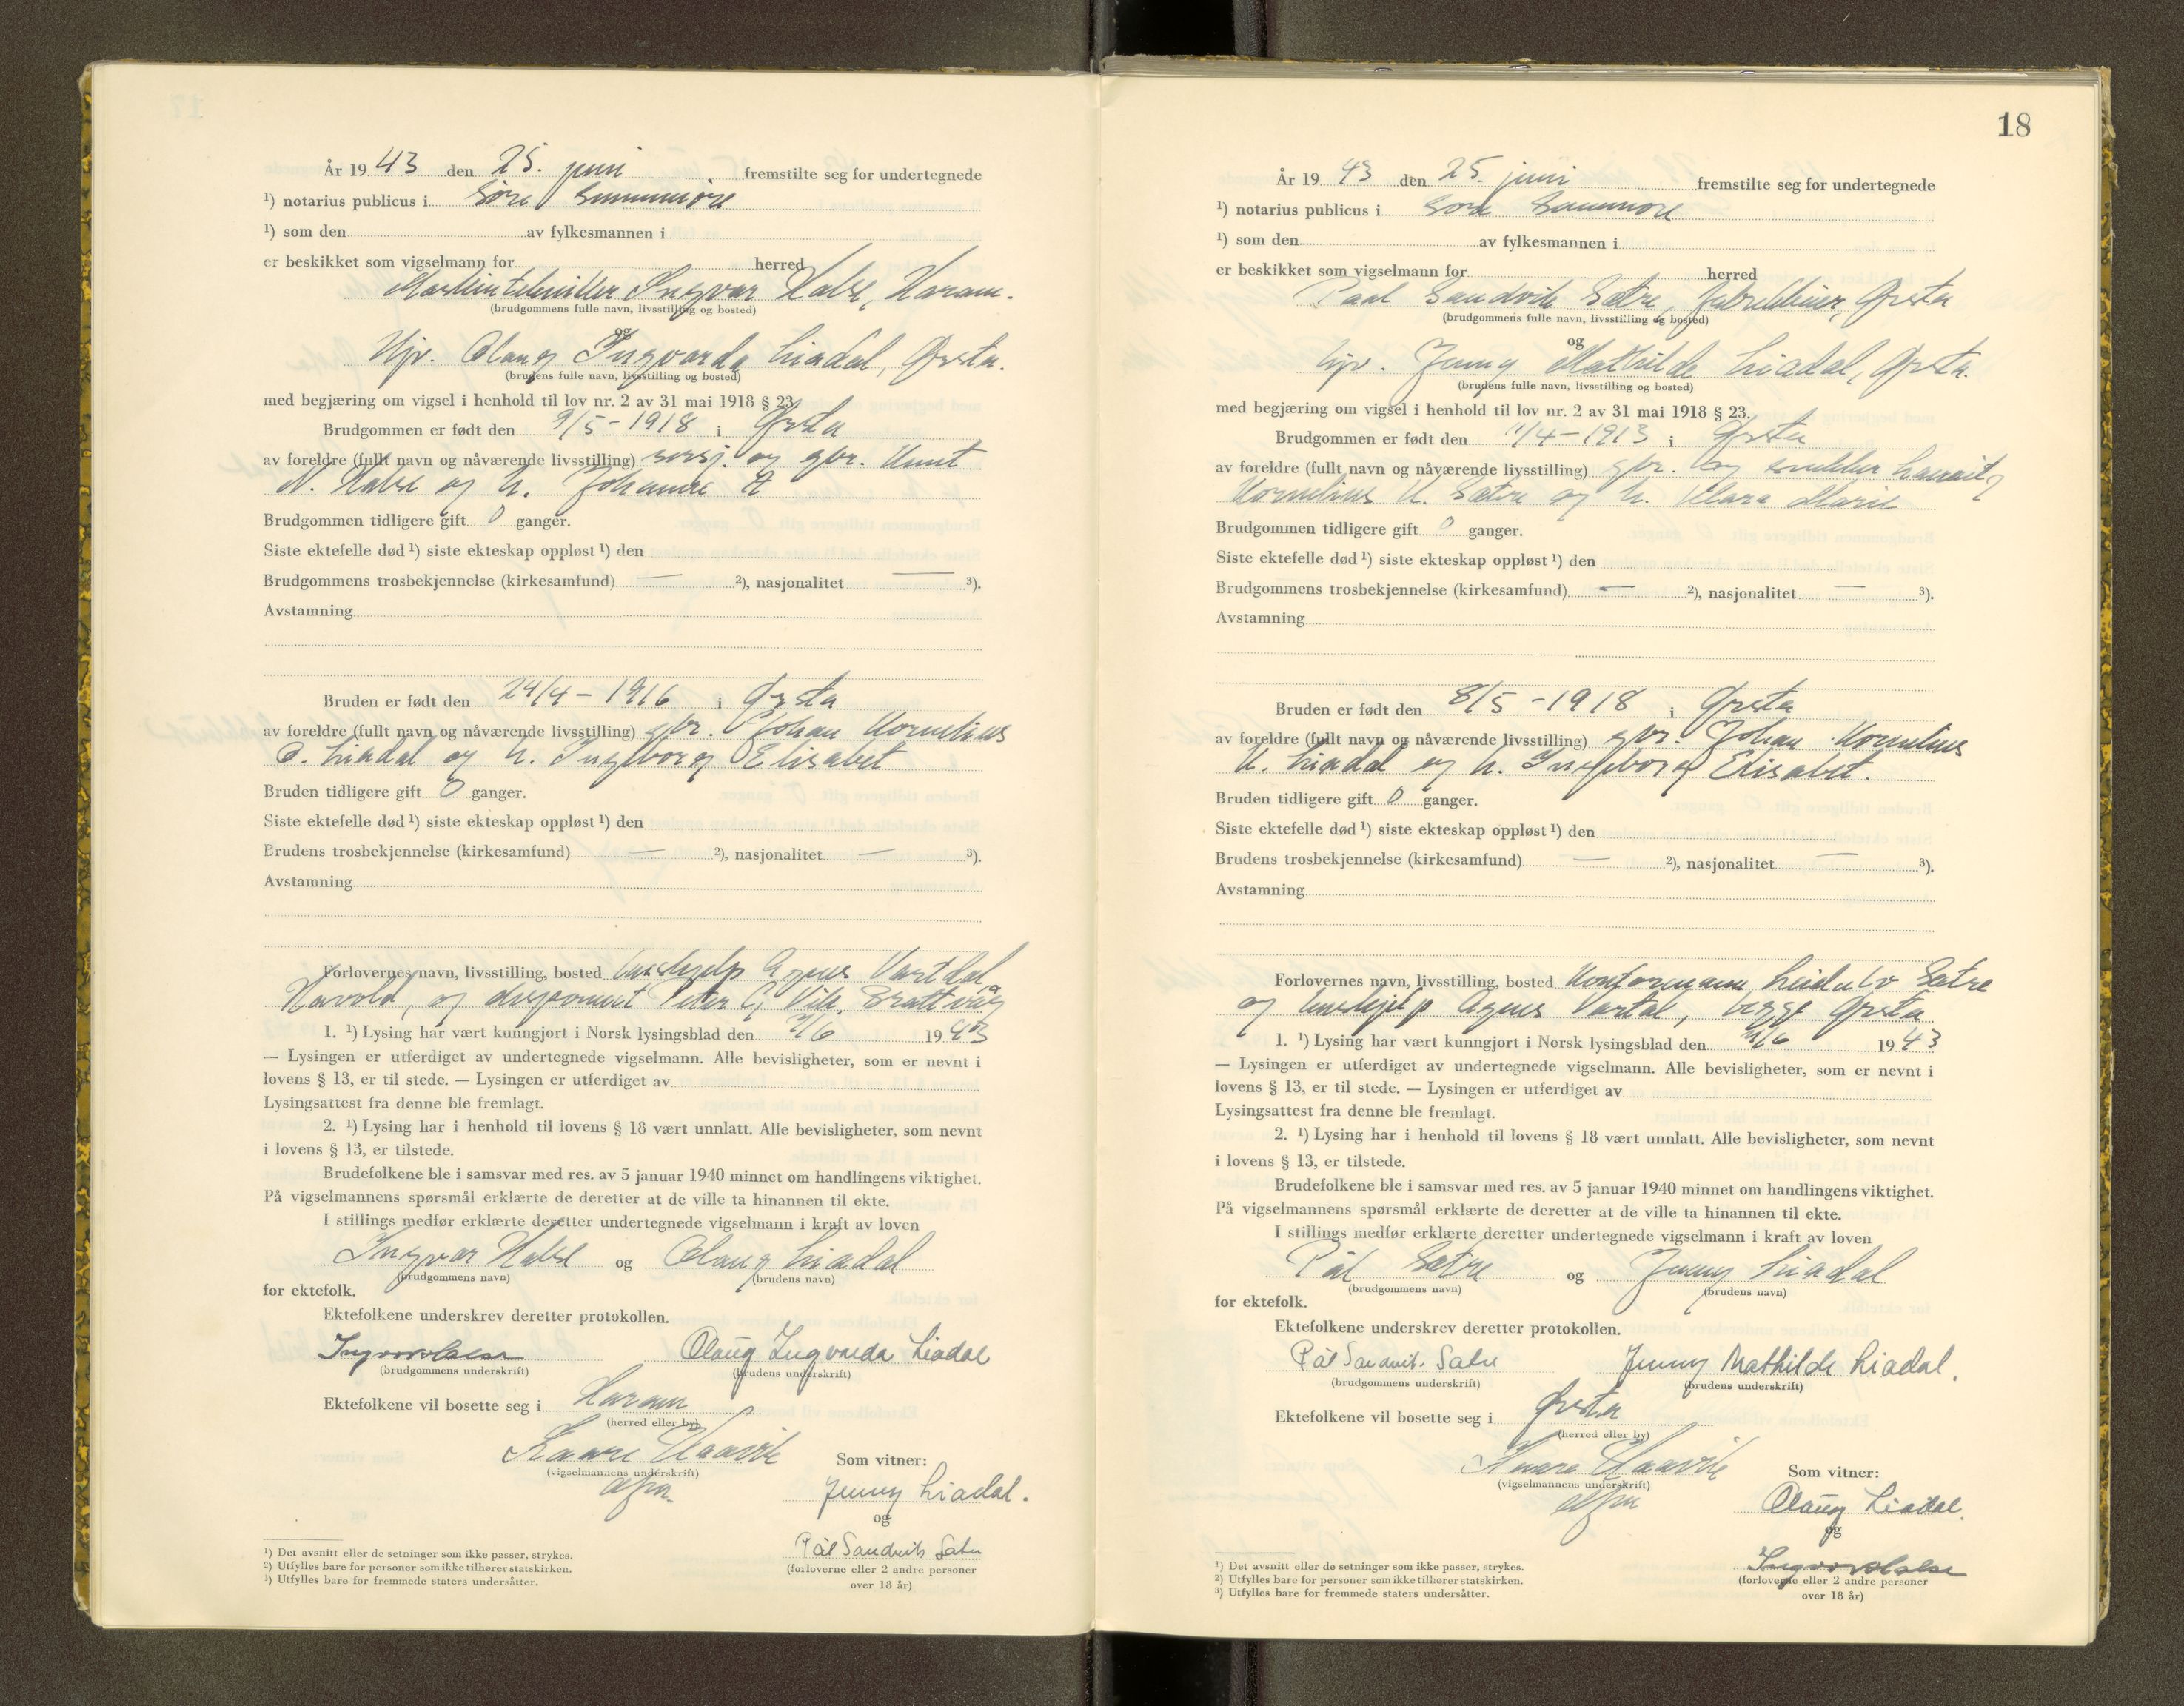 År 19 43 den 25. juni fremstilte seg for undertegnede
¹) notarius publicus i Søre Sunnmøre
¹) som den av fylkesmannen i
er beskikket som vigselmann for herred
Maskintekniker Ingvar Halse, Haram.
(brudgommens fulle navn, livsstilling og bosted)
og
Hjv. Olaug Ingvarda Liadal, Ørsta.
(brudens fulle navn, livsstilling og bosted)
med begjæring om vigsel i henhold til lov nr. 2 av 31 mai 1918 § 23.
Brudgommen er født den 9/5-1918 i Ørsta
av foreldre (fullt navn og nåværende livsstilling) og gbr. Knut
N. Halse og h. Johanne
Brudgommen tidligere gift 0 ganger.
Siste ektefelle død ¹) siste ekteskap oppløst ¹) den
Brudgommens trosbekjennelse (kirkesamfund) — ²), nasjonalitet — ³).
Avstamning
Bruden er født den 24/4-1916 i Ørsta
av foreldre (fullt navn og nåværende livsstilling) gbr. Johan Kornelius
Liadal og h. Ingeborg Elisabet
Bruden tidligere gift 0 ganger.
Siste ektefelle død ¹) siste ekteskap oppløst ¹) den
Brudens trosbekjennelse (kirkesamfund) — ²), nasjonalitet — ³).
Avstamning
Forlovernes navn, livsstilling, bosted hushjelp Agnes Vartdal,
og disponent Peter Vik, Brattvåg
1. ¹) Lysing har vært kunngjort i Norsk lysingsblad den /6 19 43
— Lysingen er utferdiget av undertegnede vigselmann. Alle bevisligheter, som er nevnt i
lovens § 13, er til stede. — Lysingen er utferdiget av
Lysingsattest fra denne ble fremlagt.
2. ¹) Lysing har i henhold til lovens § 18 vært unnlatt. Alle bevisligheter, som nevnt
i lovens § 13, er tilstede.
Brudefolkene ble i samsvar med res. av 5 januar 1940 minnet om handlingens viktighet.
På vigselmannens spørsmål erklærte de deretter at de ville ta hinannen til ekte.
I stillings medfør erklærte deretter undertegnede vigselmann i kraft av loven
Ingvar Halse og Olaug Liadal
(brudgommens navn) (brudens navn)
for ektefolk.
Ektefolkene underskrev deretter protokollen.
Ingvar Halse Olaug Ingvarda Liadal
(brudgommens underskrift) (brudens underskrift)
Ektefolkene vil bosette seg i Haram
(herred eller by)
Kaare Haavik
(vigselmannens underskrift)
Som vitner:
Jenny Liadal.
og
Pål Sandvik Sætre
(forloverne eller 2 andre personer
over 18 år)
¹) Det avsnitt eller de setninger som ikke passer, strykes.
²) Utfylles bare for personer som ikke tilhører statskirken.
³) Utfylles bare for fremmede staters undersåtter.
18
År 19 43 den 25. juni fremstilte seg for undertegnede
¹) notarius publicus i Søre Sunnmøre
¹) som den av fylkesmannen i
er beskikket som vigselmann for herred
Paal Sandvik Sætre, Ørsta
(brudgommens fulle navn, livsstilling og bosted)
og
hjv. Jenny Mathilde Liadal, Ørsta.
(brudens fulle navn, livsstilling og bosted)
med begjæring om vigsel i henhold til lov nr. 2 av 31 mai 1918 § 23.
Brudgommen er født den 11/4-1913 i Ørsta
av foreldre (fullt navn og nåværende livsstilling) gbr. og
Kornelius K. Sætre og h. Klara Marie
Brudgommen tidligere gift 0 ganger.
Siste ektefelle død ¹) siste ekteskap oppløst ¹) den
Brudgommens trosbekjennelse (kirkesamfund) — ²), nasjonalitet — ³).
Avstamning
Bruden er født den 8/5-1918 i Ørsta
av foreldre (fullt navn og nåværende livsstilling) gbr. Johan Kornelius
K. Liadal og h. Ingeborg Elisabet.
Bruden tidligere gift 0 ganger.
Siste ektefelle død ¹) siste ekteskap oppløst ¹) den
Brudens trosbekjennelse (kirkesamfund) — ²), nasjonalitet — ³).
Avstamning
Forlovernes navn, livsstilling, bosted Kontormann Leidulv Sætre
og hushjelp Agnes Vartdal, begge Ørsta
1. ¹) Lysing har vært kunngjort i Norsk lysingsblad den /6 19 43
— Lysingen er utferdiget av undertegnede vigselmann. Alle bevisligheter, som er nevnt i
lovens § 13, er til stede. — Lysingen er utferdiget av
Lysingsattest fra denne ble fremlagt.
2. ¹) Lysing har i henhold til lovens § 18 vært unnlatt. Alle bevisligheter, som nevnt
i lovens § 13, er tilstede.
Brudefolkene ble i samsvar med res. av 5 januar 1940 minnet om handlingens viktighet.
På vigselmannens spørsmål erklærte de deretter at de ville ta hinannen til ekte.
I stillings medfør erklærte deretter undertegnede vigselmann i kraft av loven
Pål Sætre og Jenny Liadal
(brudgommens navn) (brudens navn)
for ektefolk.
Ektefolkene underskrev deretter protokollen.
Pål Sandvik Sætre Jenny Mathilde Liadal.
(brudgommens underskrift) (brudens underskrift)
Ektefolkene vil bosette seg i Ørsta
(herred eller by)
Kaare Haavik
(vigselmannens underskrift)
Som vitner:
Olaug Liadal.
og
Ingvar Halse
(forloverne eller 2 andre personer
over 18 år)
¹) Det avsnitt eller de setninger som ikke passer, strykes.
²) Utfylles bare for personer som ikke tilhører statskirken.
³) Utfylles bare for fremmede staters undersåtter.